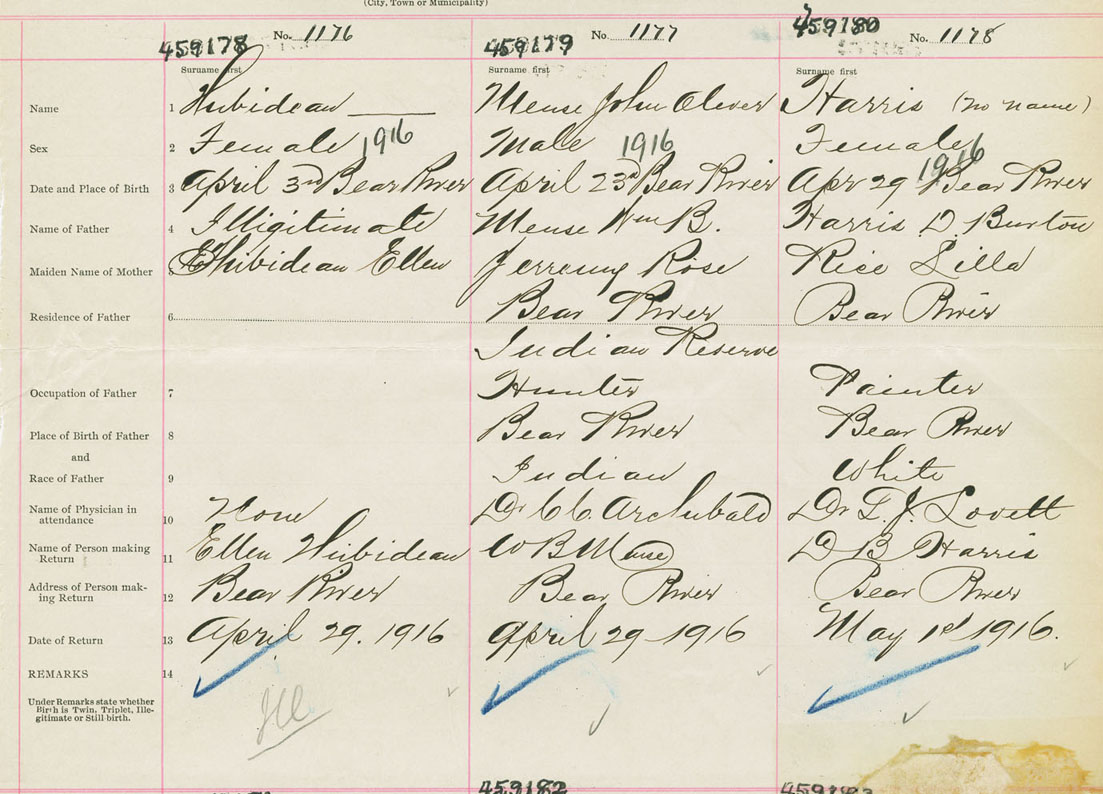 (City, Town or Municipality)
459178 No. 1176 459179 No. 1177 459180 No. 1178
Surname first Surname first Surname first
Name 1 Hubidean Meuse John Oliver Harris (no name)
Sex 2 Female 1916 Male 1916 Female 1916
Date and Place of Birth 3 April 3rd Bear River April 23rd Bear River Apr 29 Bear River
Name of Father 4 Illigitimate Meuse Wm B. Harris D. Burton
Maiden Name of Mother 5 Thibidean Ellen Jerremy Rose Rice Lilla
Residence of Father 6 Bear River Bear River
Indian Reserve
Occupation of Father 7 Hunter Painter
Place of Birth of Father 8 Bear River Bear River
and
Race of Father 9 Indian White
Name of Physician in
attendance 10 None Dr C C. Archibald Dr L. J. Lovett
Name of Person making
Return 11 Ellen Thibidean W B Meuse D B Harris
Address of Person mak-
ing Return 12 Bear River Bear River Bear River
Date of Return 13 April 29. 1916 April 29 1916 May 1st 1916.
REMARKS 14
Under Remarks state whether
Birth is Twin, Triplet, Ille-
gitimate or Still-birth.
Ill
459182